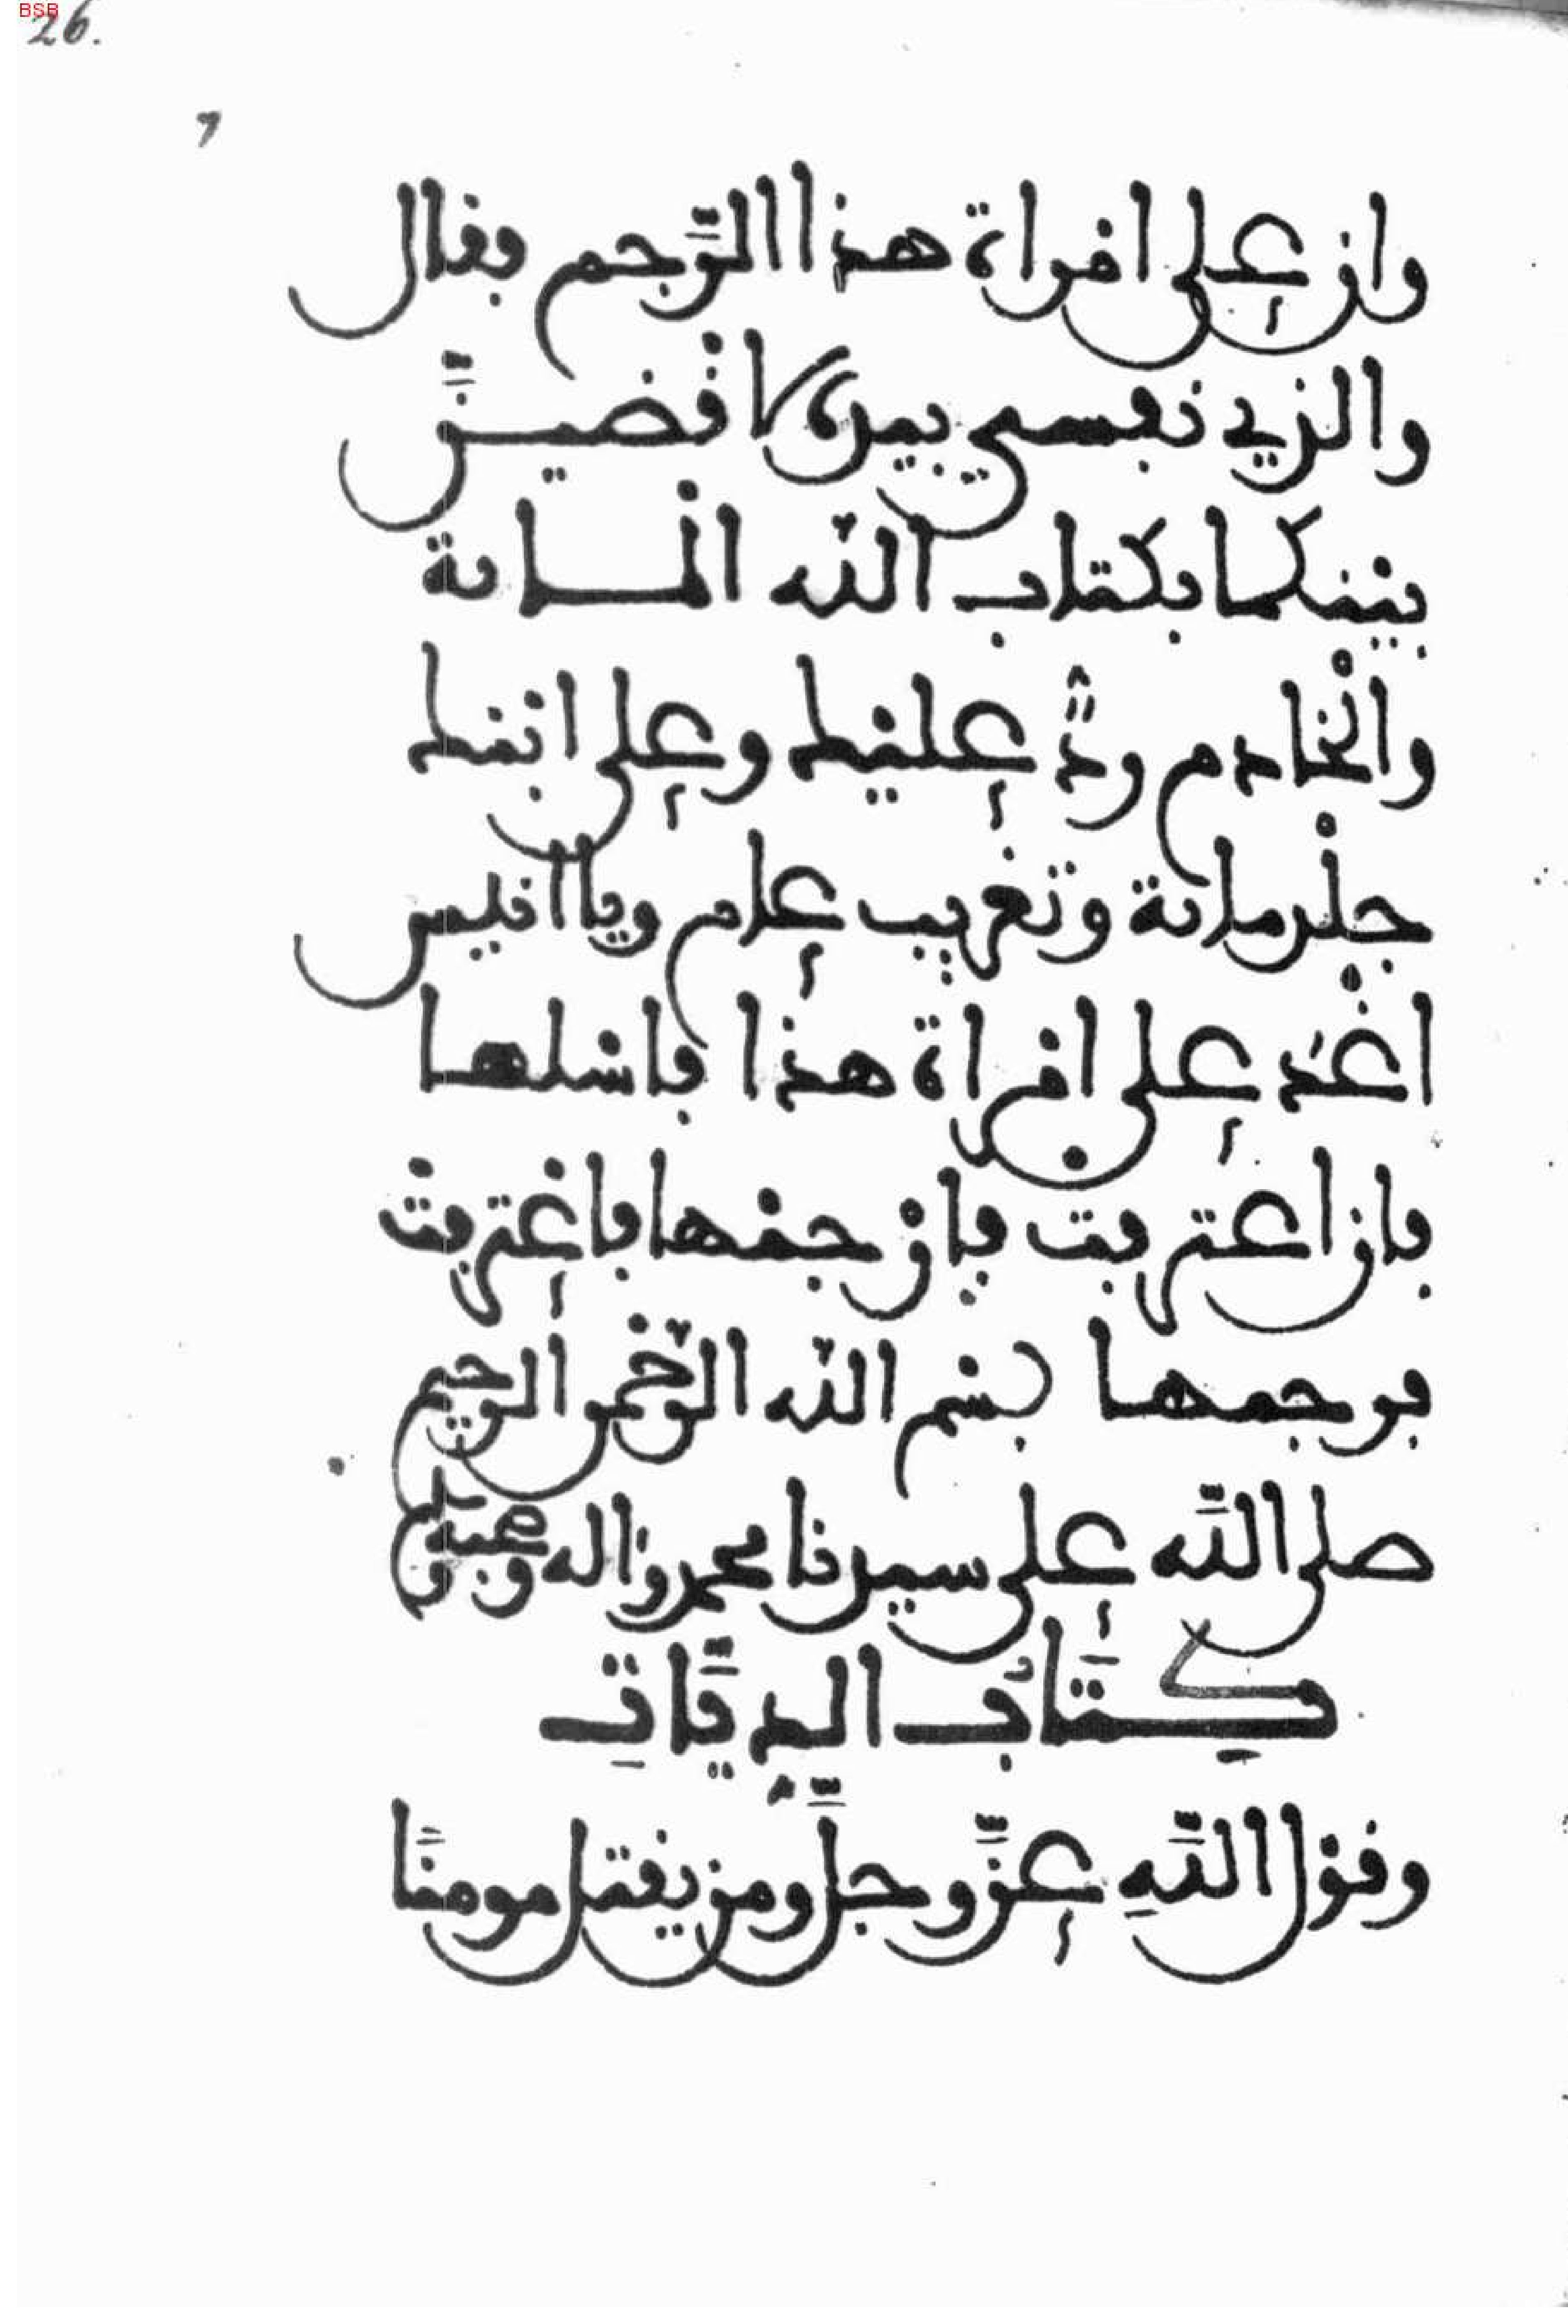 BSB
26.
7
وان على امراة هذا الرَّجم فقال
والذي نفسي بيده لاقضينَّ
بينكما بكتاب الله المائة
والخادم ردٌّ عليك وعلى ابنك
جلد مائة وتغريب عام ويا انيس
اغد على امراة هذا فاسئلها
فان اعترفت فارجمها فاعترفت
فرجمها بسم الله الرحمن الرحيم
صلى الله على سيدنا محمد واله وصحبه وسلم
كِتَابُ الدِّيَّاتِ
وقوْل اللَّهِ عزَّ وجلَّ ومن يقتل مومنًا